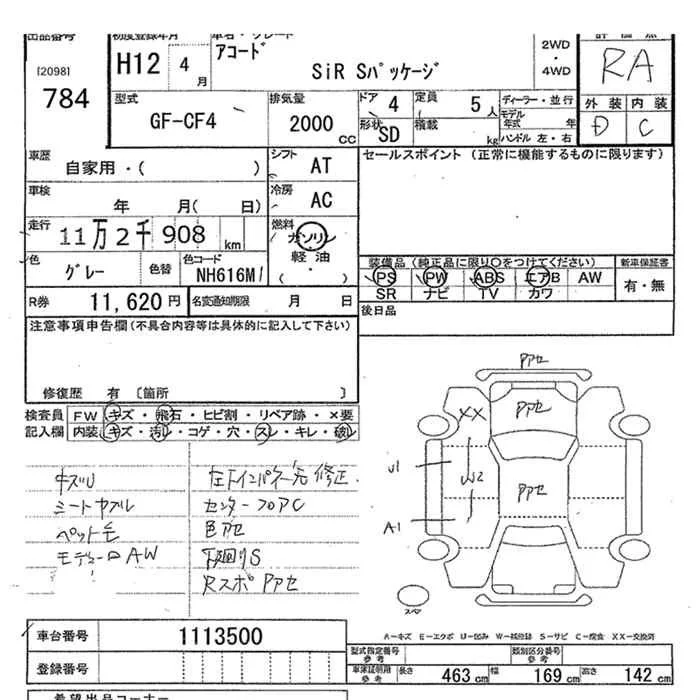 出品番号
[2098]
784
初度登録年月
H12 4月
車名・グレード
アコード
SiR Sパッケージ
2WD
・
4WD
評価点
RA
型式
GF-CF4
排気量
2000 CC
ドア 4
定員 5人
形状 SD
積載 kg
ディーラー・並行
モデル年式 年
ハンドル 左・右
外装 内装
D C
車歴
自家用・( )
シフト AT
セールスポイント (正常に機能するものに限ります)
車検
年 月( 日)
冷房 AC
走行
11万2千908 km
燃料
ガソリン
軽油
・
( )
色
グレー
色替
色コード
NH616M/
装備品 (純正品に限り○をつけてください)
新車保証書
PS PW ABS エアB AW
SR ナビ TV カワ
有・無
R券 11,620円
名変通知期限 月 日
後日品
注意事項申告欄(不具合内容等は具体的に記入して下さい)
修復歴 有 〔箇所 〕
検査員 FW キズ・飛石・ヒビ割・リペア跡・×要
記入欄 内装 キズ・汚レ・コゲ・穴・スレ・キレ・破レ
キズU
シートヤブレ
ペット毛
モデューロAW
左下インパネ一先修正
センターフロアC
色アセ
下廻りS
RスポPアセ
Pアセ
Pアセ
XX
U1
W2
Pアセ
A1
スペア
A−キズ E−エクボ U−凹み W−補修跡 S−サビ C−腐食 XX−交換済
車台番号 1113500
登録番号
型式指定番号
参考
類別区分番号
参考
車検証明細
参考
長さ 463 cm
幅 169 cm
高さ 142 cm
希望出品コーナー